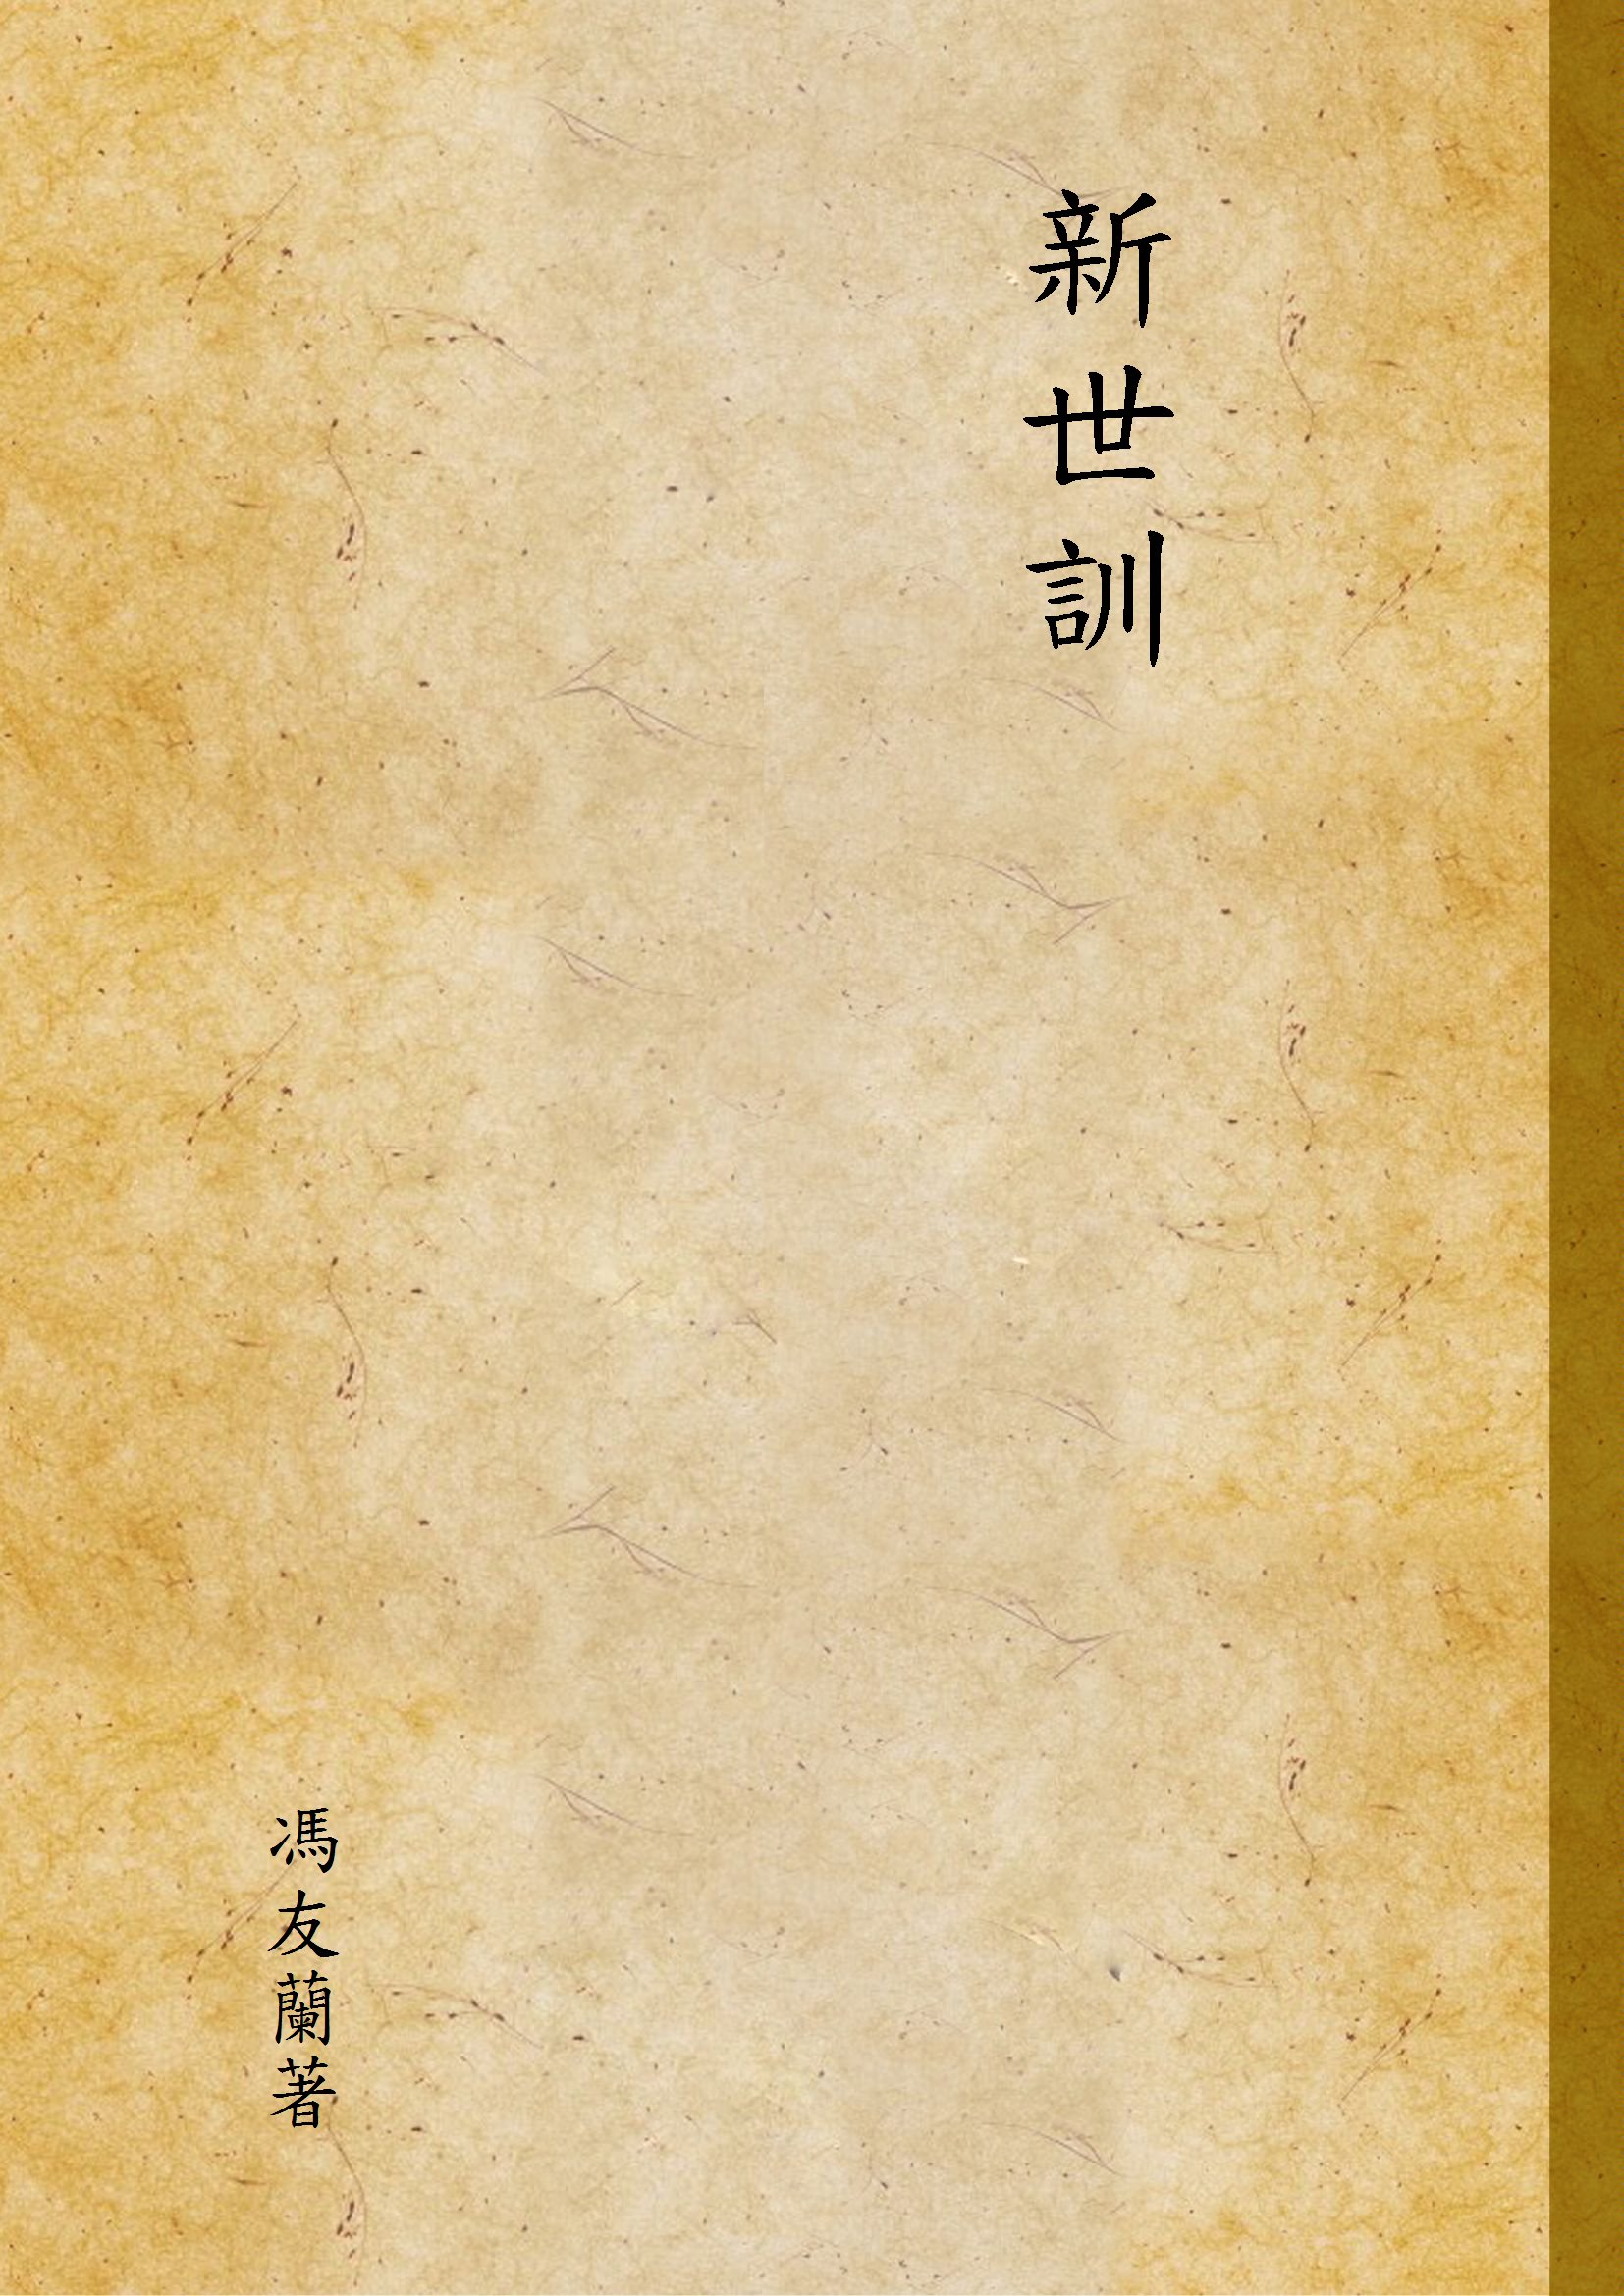 新世訓
馮友蘭著